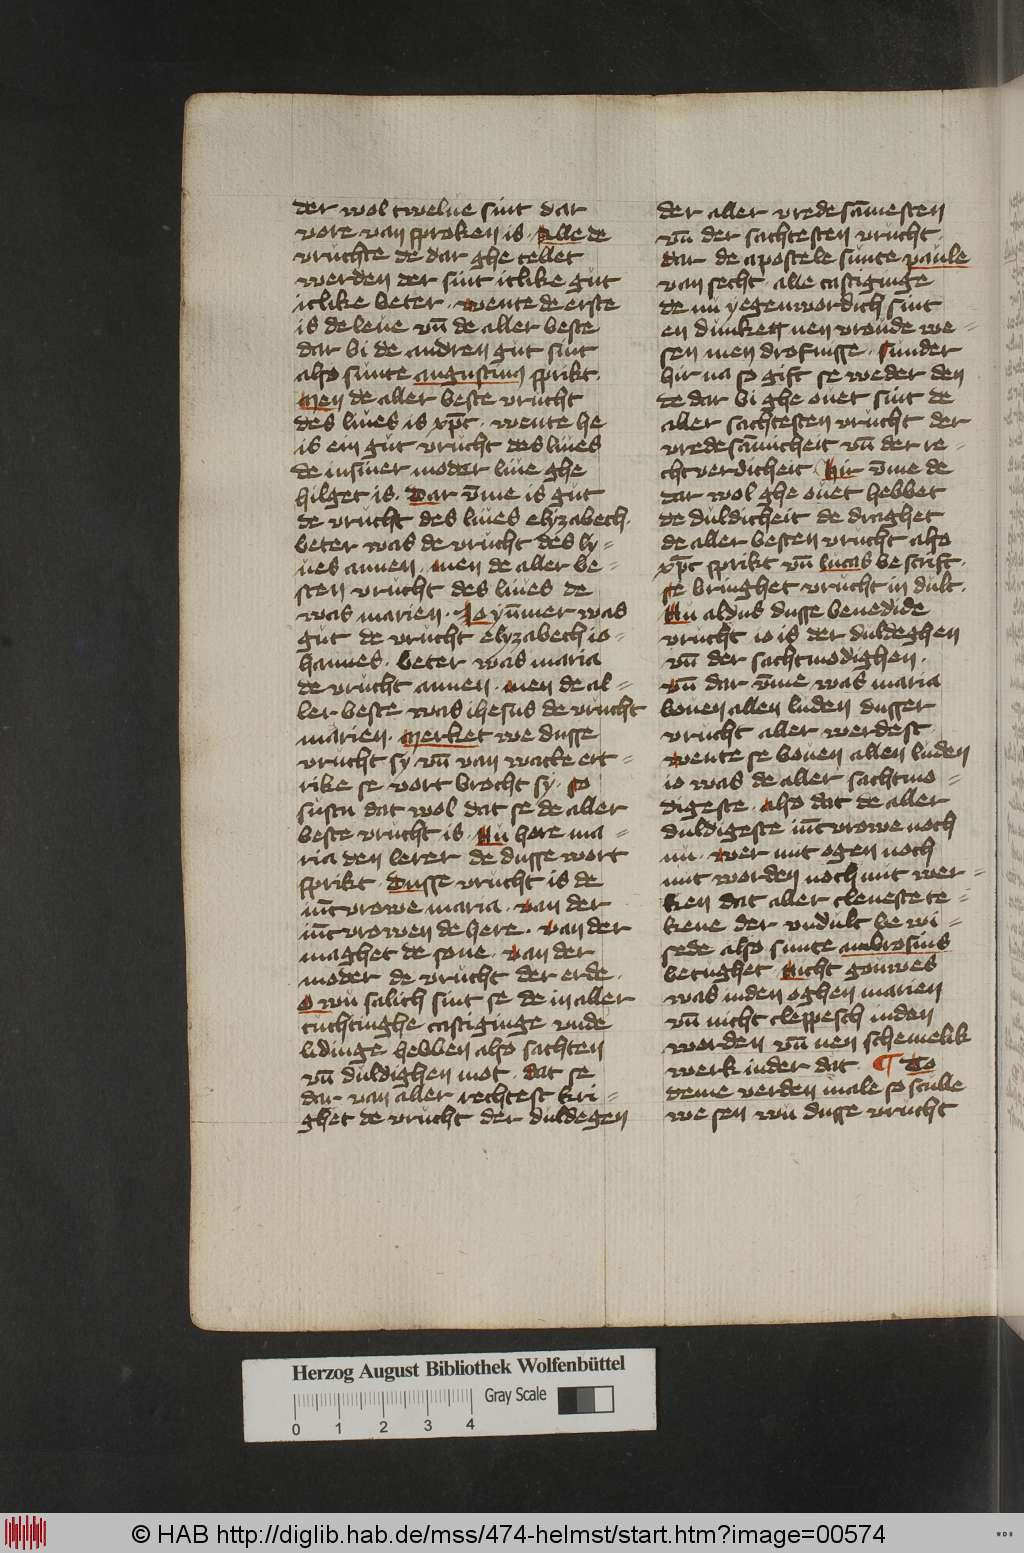 der wol twelue sint dar
vore van sproken is · Alle de
vruchte de dar ghe tellet
werden der sint itlike gut
itlike beter · wente de erste
is de leue vn̄ de aller beste
dar bi de andren gut sint
also sunte augustinꝰ sprikt ·
Men de aller beste vrucht
des liues is xp̄c · wente he
is ein gut vrucht des liues
de in siner moder liue ghe
hilget is · Dar v̄me is gut
de vrucht des liues elyzabech ·
beter was de vrucht des ly=
ues annen · men de aller be=
sten vrucht des liues de
was marien · Jo yūmer was
gut de vrucht elyzabech io=
hannes · beter was maria
de vrucht annen · men de al=
ler beste was ihesus de vrucht
marien · Merket we dusse
vrucht sy vn̄ van watke ert=
rike se vort brocht sy · so
sustu dat wol dat se de aller
beste vrucht is · Nu hore ma=
ria den lerer de dusse wort
sprikt · Dusse vrucht is de
iūcvrowe maria · van der
iūcvrowen de here · van der
maghet de sone · van der
moder de vrucht der erde ·
O wu salich sint se de in aller
tuchtinghe castiginge vnde
lidinge hebben also sachten
vn̄ duldighen mot · dat se
dar van aller rechtest kri=
ghet de vrucht der duldegen
der aller vredesāmesten
vn̄ der sachtesten vrucht
dar de apostele sunte paule
van secht · alle castiginge
de nu yegenwordich sint
en dunken nen vroude we=
sen men drofnisse · sunder
hir na so gift se weder den
de dar bi ghe ouet sint de
aller sachtesten vrucht der
vredesāmicheit vn̄ der re=
chtverdicheit · Hir v̄me de
dar wol ghe ouet hebbet
de duldicheit de draghet
de aller besten vrucht also
xp̄c sprikt vn̄ lucas be scrift ·
se bringhet vrucht in dult ·
Nu aldus dusse benedide
vrucht io is der duldeghen
vn̄ der sachtmodighen ·
vn̄ dar v̄me was maria
bouen allen luden dusser
vrucht aller werdest ·
wente se bouen allen luden
io was de aller sachtmo=
digeste · also dat de aller
duldigeste iūcvrowe noch
nu · wer mit ogen noch
mit worden noch mit wer=
ken dat aller cleneste te=
kene der vndult be wi=
sede also sunte ambrosius
betughet Nicht gouwes
was in den oghen marien
vn̄ nicht cleppesch in den
worden vn̄ nen schemelik
werk in der dat · ¶ To
deme verden male so sculle
we sen wu dusse vrucht
Herzog August Bibliothek Wolfenbüttel
Gray Scale
0 1 2 3 4
© HAB http://diglib.hab.de/mss/474-helmst/start.htm?image=00574